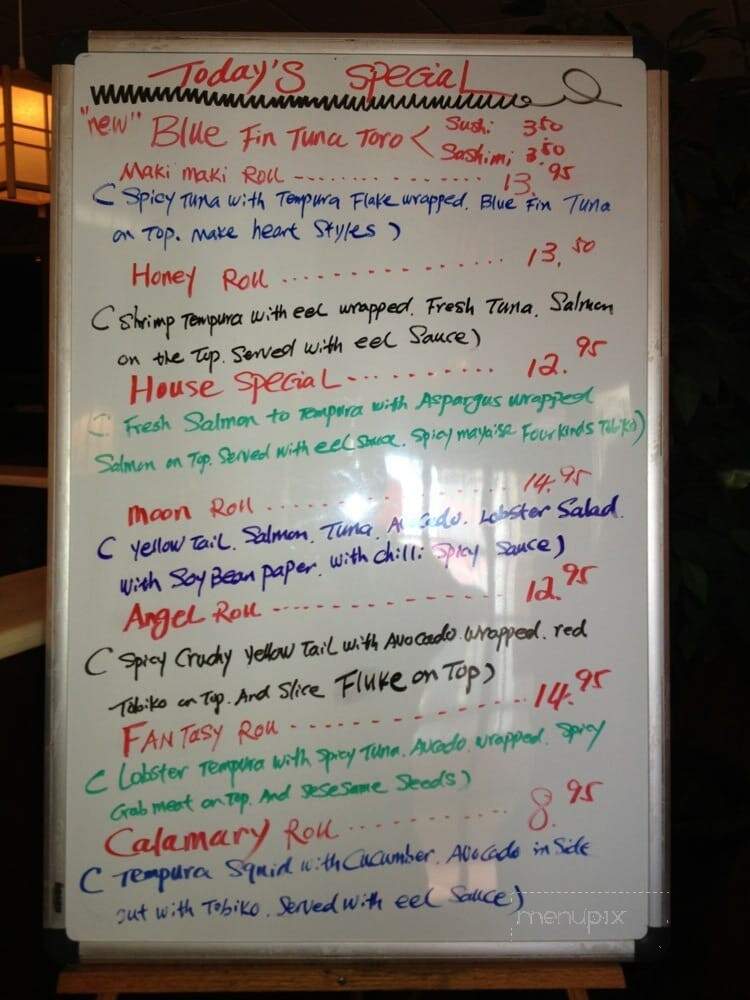 Today's Special
"new" Blue Fin Tuna Toro < Sushi 3.50
Sashimi 3.50
Maki maki Roll 13.95
( Spicy Tuna with Tempura Flake wrapped. Blue Fin Tuna
on Top. make heart Styles )
Honey Roll 13.50
( Shrimp Tempura with eel wrapped. Fresh Tuna. Salmon
on the Top. Served with eel Sauce)
House Special 12.95
( Fresh Salmon to tempura with Aspargus wrapped
Salmon on Top. Served with eel Sauce. Spicy mayaise Four kinds Tobiko)
Moon Roll 14.95
( Yellow Tail. Salmon. Tuna. Avocado. Lobster Salad.
with Soy Bean paper. with chilli Spicy Sauce)
Angel Roll 12.95
( Spicy Cruchy Yellow Tail with Avocado wrapped. red
Tobiko on Top. And Slice Fluke on Top)
Fantasy Roll 14.95
( Lobster Tempura with Spicy Tuna. Avocado. wrapped. Spicy
Crab meat on Top. And Sesesame Seeds)
Calamary Roll 8.95
( Tempura Squid with Cucumber. Avocado in Side
out with Tobiko. Served with eel Sauce)
menupix